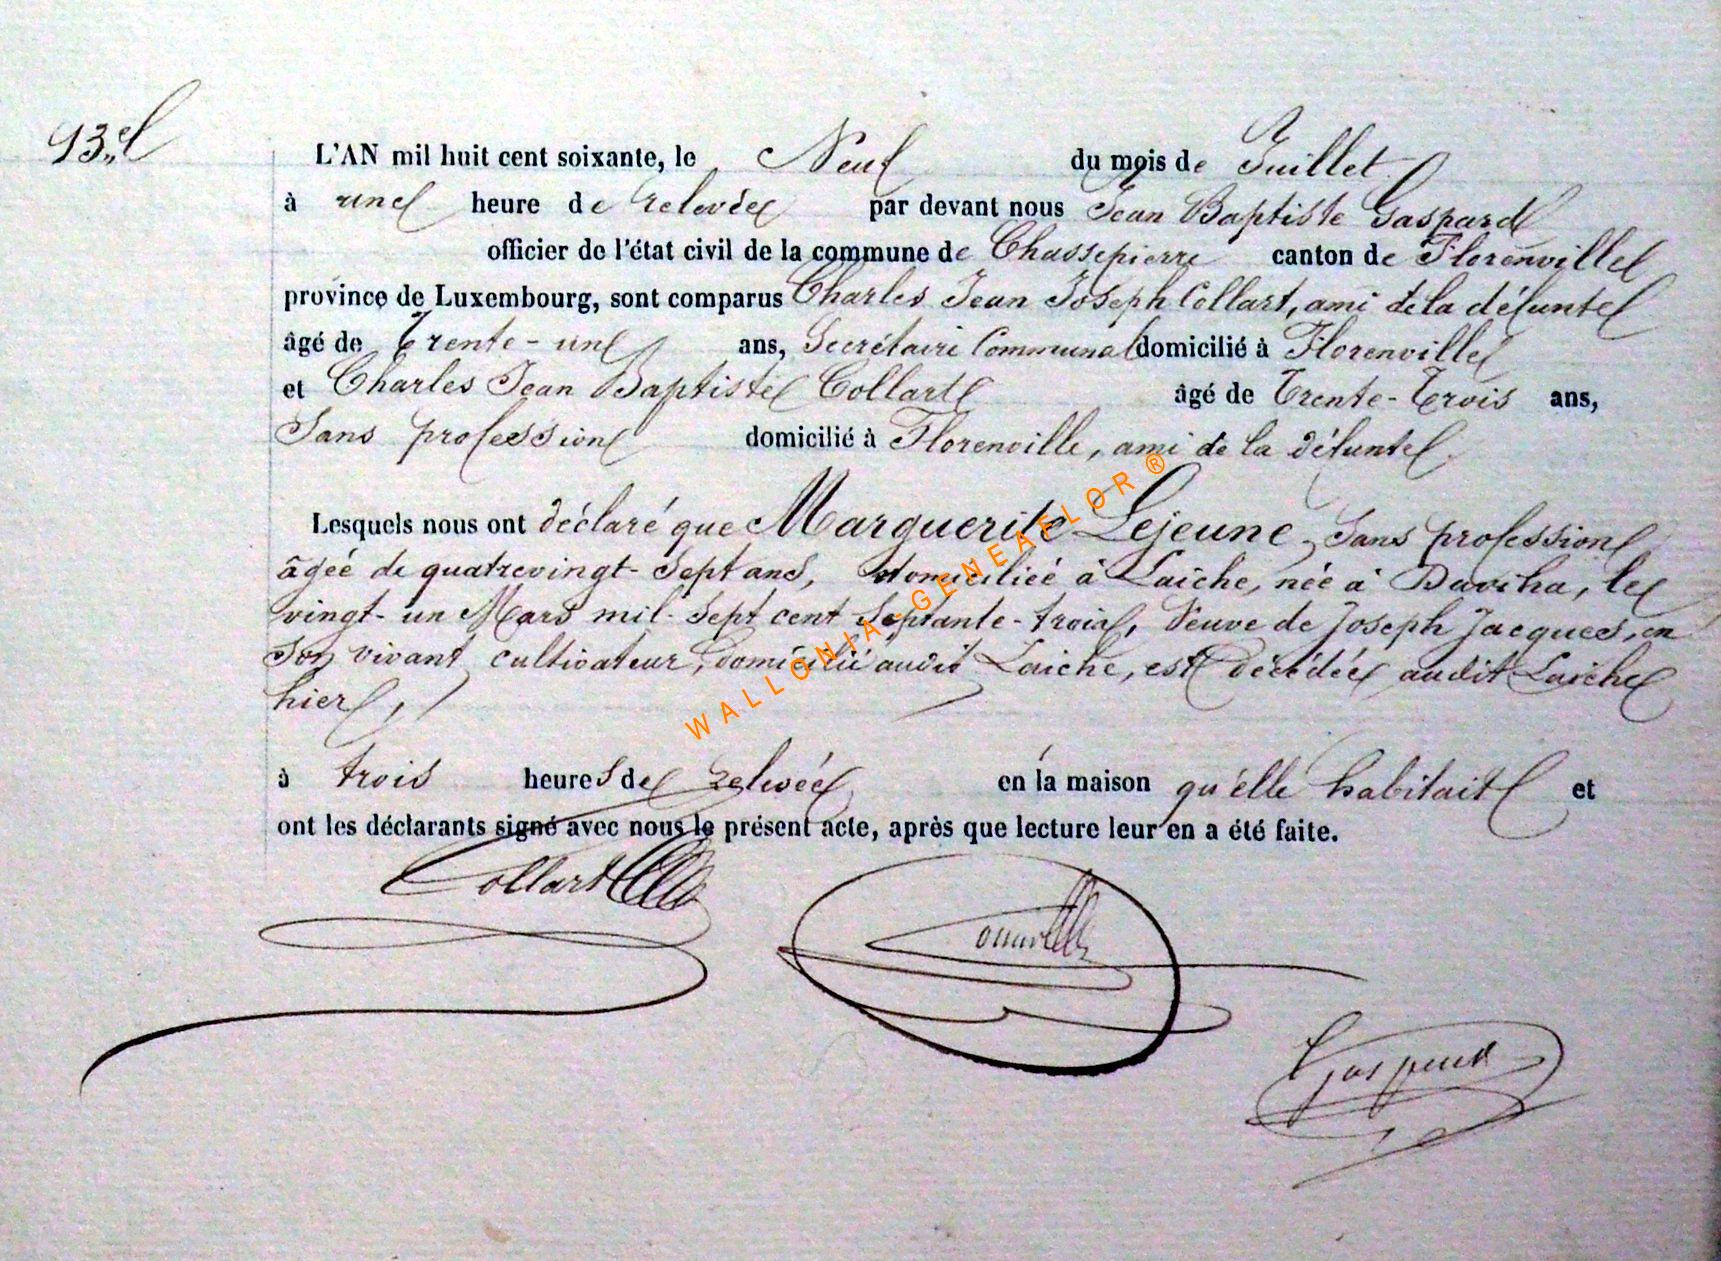 13.e
L'AN mil huit cent soixante, le Neuf du mois de Juillet
à une heure de relevée par devant nous Jean Baptiste Gaspard
officier de l'état civil de la commune de Chassepierre canton de Florenville
province de Luxembourg, sont comparus Charles Jean Joseph Collart, ami de la défunte
âgé de Trente-un ans, Secrétaire Communal domicilié à Florenville
et Charles Jean Baptiste Collart âgé de Trente-Trois ans,
Sans profession domicilié à Florenville, ami de la défunte
Lesquels nous ont déclaré que Marguerite Lejeune, Sans profession
âgée de quatrevingt-Sept ans, domiciliée à Laiche, née à Daviha, le
vingt-un Mars mil-Sept cent Septante-trois, Veuve de Joseph Jacques, en
Son vivant cultivateur, domicilié audit Laiche, est décédée audit Laiche
hier,
à trois heures de relevée en la maison qu'elle habitait et
ont les déclarants signé avec nous le présent acte, après que lecture leur en a été faite.
Collart
Gaspard
WALLONIA-GENEAFLOR ®